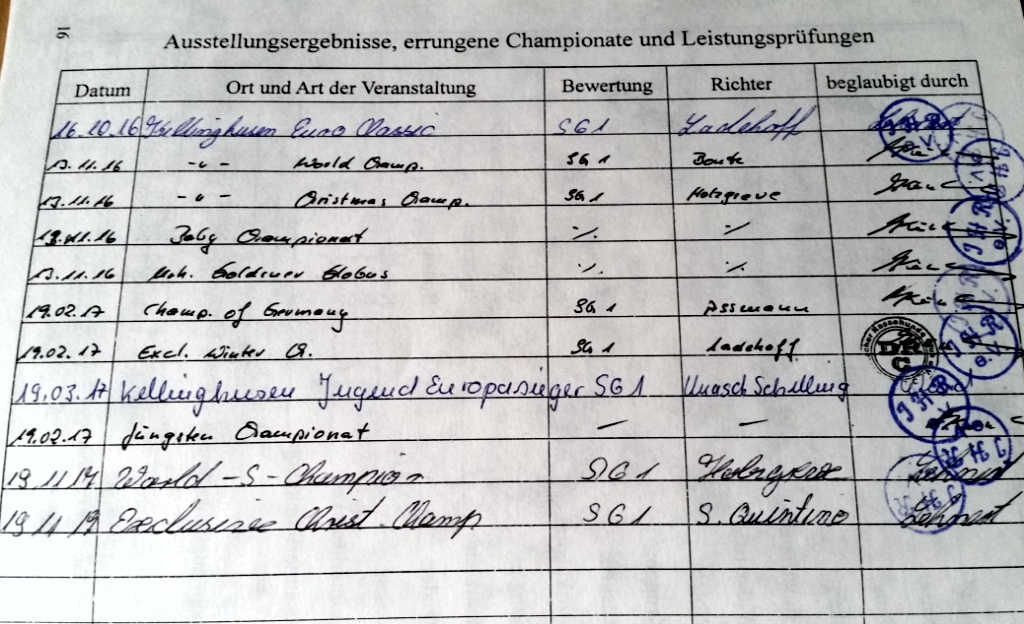 16
Ausstellungsergebnisse, errungene Championate und Leistungsprüfungen
Datum Ort und Art der Veranstaltung Bewertung Richter beglaubigt durch
16.10.16 Kellinghusen Euro Classic SG1 Ladehoff
13.11.16 -"- World Champ. SG 1 Bonte
13.11.16 -"- Christmas Champ. SG 1 Holzgreve
13.11.16 Baby Championat ·/. ·/.
13.11.16 Goldener Globus ·/. ·/.
19.02.17 Champ. of Germany SG 1 Assmann
19.02.17 Excl. Winter Ch. SG 1 Ladehoff
19.03.17 Kellinghusen Jugend Europasieger SG1 Schilling
19.02.17 Jüngsten Championat — —
19 11 17 World - S - Champion SG 1 Holzgreve
19 11 17 Exclusive Christ. Champ SG1 S. Quintino Lehnert